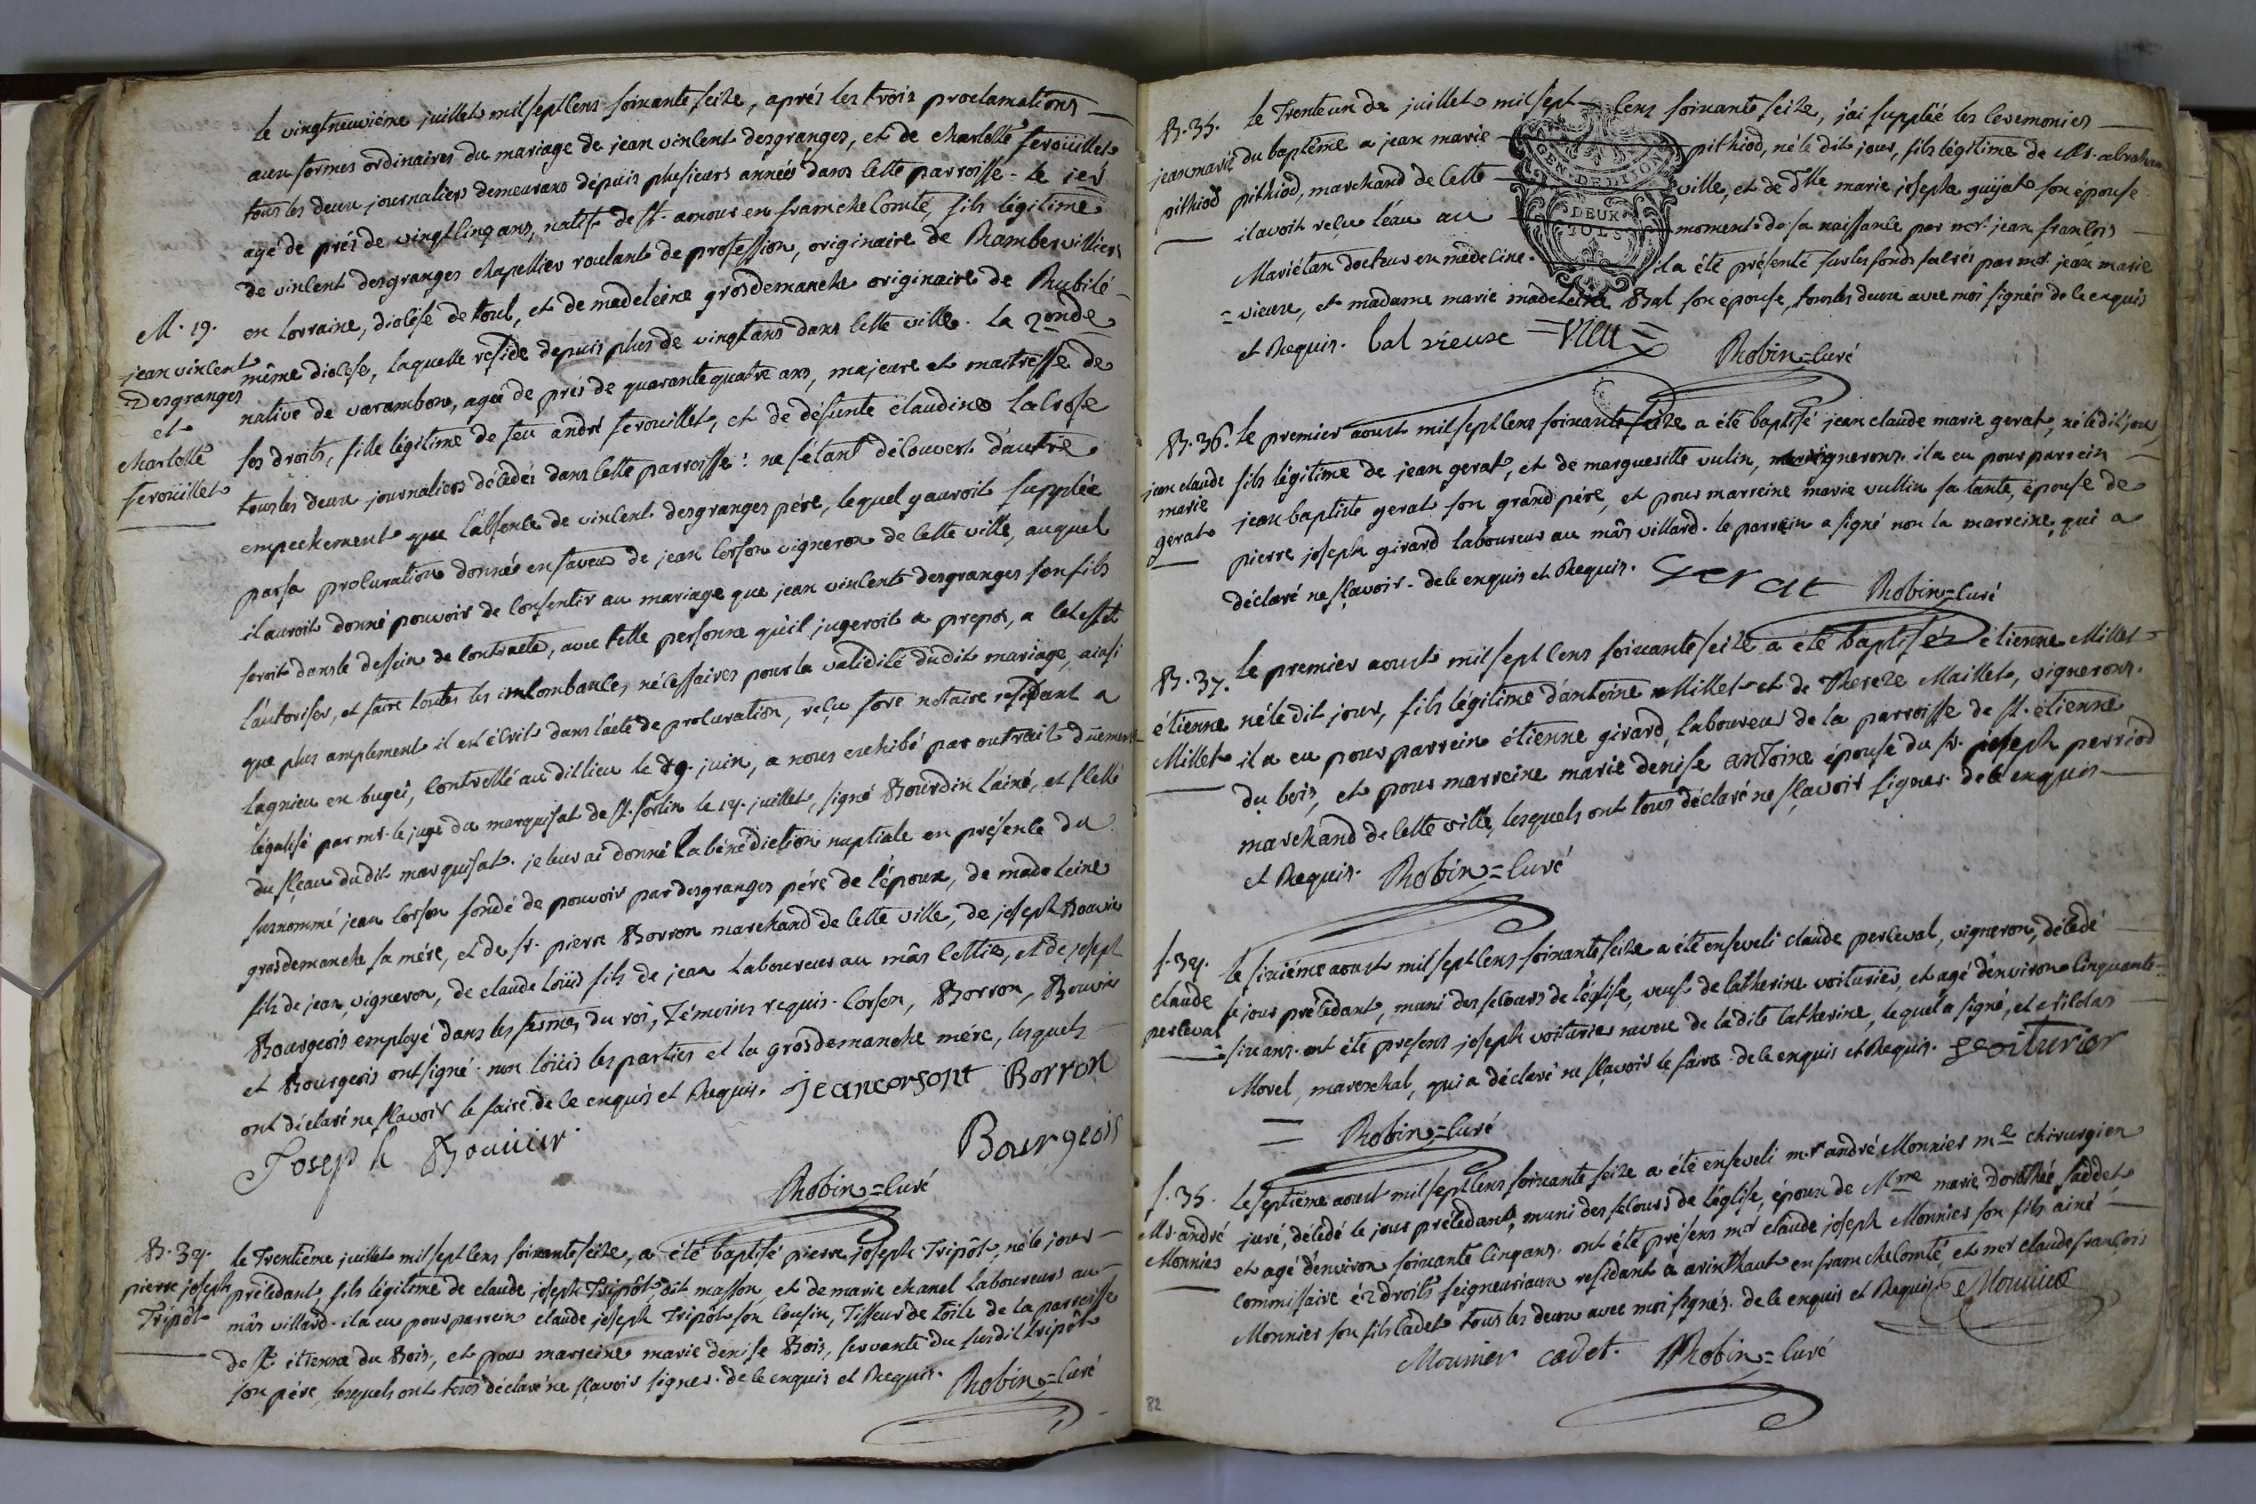 le vingtneuvième juillet mil sept cens soixante seize, aprés les trois proclamations
aux formes ordinaires du mariage de jean vincent desgranges, et de charlotte ferouillet
tous les deux journaliers demeurans dépuis plusieurs années dans cette parroisse = le 1er
agé de prés de vingt cinq ans, natif de st. amour en franche comté, fils légitime
de vincent desgranges chapellier roulant de profession, originaire de Rambervilliers
M. 19. en lorraine, diocése de toul, et de madeleine grosdemanche originaire de
jean vincent même diocése, laquelle reside depuis plus de vingt ans dans cette ville. la 2onde
Desgranges native de varambon, agée de prés de quarante quatre ans, majeure et maitresse de
et ses droits, fille légitime de feu andré ferouillet, et de défunte claudine lacrose
charlotte tous les deux journaliers décédés dans cette parroisse: ne s'étant découvert d'autre
ferouillet empechement que l'absence de vincent desgranges pére, lequel y auroit supplée
par sa procuration donnée en faveur de jean corson vigneron de cette ville, auquel
il auroit donné pouvoir de consentir au mariage que jean vincent desgranges son fils
seroit dans le dessein de contracter, avec telle personne qu'il jugeroit a propos, a cet effet
l'autoriser, et faire toutes les incombances nécessaires pour la validité dudit mariage, ainsi
que plus amplement il est écrit dans l'acte de procuration, reçu notaire residant a
lagnieu en bugei, controllé audit lieu le 29. juin, a nous exhibé par extrait duement
légalisé par mr. le juge du marquisat de st. sorlin le 14. juillet, signé Bourdin l'ainé, et scellé
du sçeau dudit marquisat. je leur ai donné la bénédiction nuptiale en présence du
surnommé jean corson fondé de pouvoir par desgranges pére de l'époux, de madeleine
grosdemanche sa mére, et de sr. pierre Borron marchand de cette ville, de joseph Bouvier
fils de jean, vigneron, de claude loüis fils de jean laboureur au mâs, et de joseph
Bourgeois employé dans les fermes du roi, témoins requis. corson, Borron, Bouvier
et Bourgeois ont signé. non loüis les parties et la grosdemanche mére, lesquels
ont déclaré ne sçavoir le faire de ce enquis et Requis. jean corsont Borron
Joseph Bouuier Bourgeois
Robin = curé
B. 34. le trentième juillet mil sept cens soixante seize, a été baptisé pierre joseph Tripôt, né le jour
pierre joseph précédant, fils légitime de claude joseph Tripôt dit masson, et de marie chanel laboureurs au
Tripôt mâs villard. il a eu pour parrein claude joseph Tripôt son cousin, Tisseur de toile de la parroisse
de st. étienne du Bois, et pour marreine marie denise Bois, servante du susdit tripôt
son pére, lesquels ont tous déclaré ne sçavoir signer. de ce enquis et Requis. Robin = curé
B. 35. le Trente un de juillet mil sept cens soixante seize, j'ai supplée les ceremonies
jean marie du baptême a jean marie pithiod, né le dit jour, fils légitime de Mr. abraham
pithiod pithiod, marchand de cette ville, et de dlle marie josephe guÿat son épouse
il avoit reçu l'eau au moment de sa naissance par mr. jean françois
Mariétan docteur en medecine. il a été présenté sur les fonds sacrés par mr. jean marie
= vieux, et madame marie madeleine Bal son épouse, tous les deux avec moi signés de ce enquis
et Requis. bal vieux = Vieu = Robin = curé
GEN. DE DIJON
DEUX
SOLS
B. 36. le premier aoust mil sept cens soixante seize a été baptisé jean claude marie gerat, né le dit jour,
jean claude fils légitime de jean gerat, et de marguerite vulin, vignerons. il a eu pour parrein
marie jean baptiste gerat son grand pére, et pour marreine marie vullin sa tante, épouse de
gerat pierre joseph girard laboureur au mâs villard. le parrein a signé non la marreine, qui a
déclaré ne sçavoir. de ce enquis et Requis. Gerat Robin = curé
B. 37. le premier aoust mil sept cens soixante seize a été baptisé étienne Millet
étienne né le dit jour, fils légitime d'antoine Millet et de Therèze Maillet, vignerons.
Millet il a eu pour parrein étienne girard, laboureur de la parroisse de st. étienne
du bois, et pour marreine marie denise antoine épouse du sr. joseph perriod
marchand de cette ville, lesquels ont tous déclaré ne sçavoir signer. de ce enquis
et Requis. Robin = curé
S. 34. le sixième aoust mil sept cens soixante seize a été enseveli claude perceval, vigneron, décedé
claude le jour précédant, muni des secours de l'église, veuf de catherine voiturier, et agé d'environ cinquante
perceval = six ans. ont été presens joseph voiturier neveu de ladite catherine, lequel a signé, et
Morel, marechal, qui a déclaré ne sçavoir le faire. de ce enquis et Requis. voiturier
= Robin = curé
S. 35. le septième aoust mil sept cens soixante seize a été enseveli mr andré Monnier me chirurgien
Mr. andré juré, décedé le jour précédant, muni des secours de l'église, époux de Mme marie dorothée faddet
Monnier et agé d'environ soixante cinq ans. ont été présens mr claude joseph Monnier son fils ainé
commissaire és droits seigneuriaux residant a arinthaut en franche comté, et mr claude françois
Monnier son fils cadet tous les deux avec moi signés. de ce enquis et Requis. Monnier
Monnier cadet. Robin = curé
82